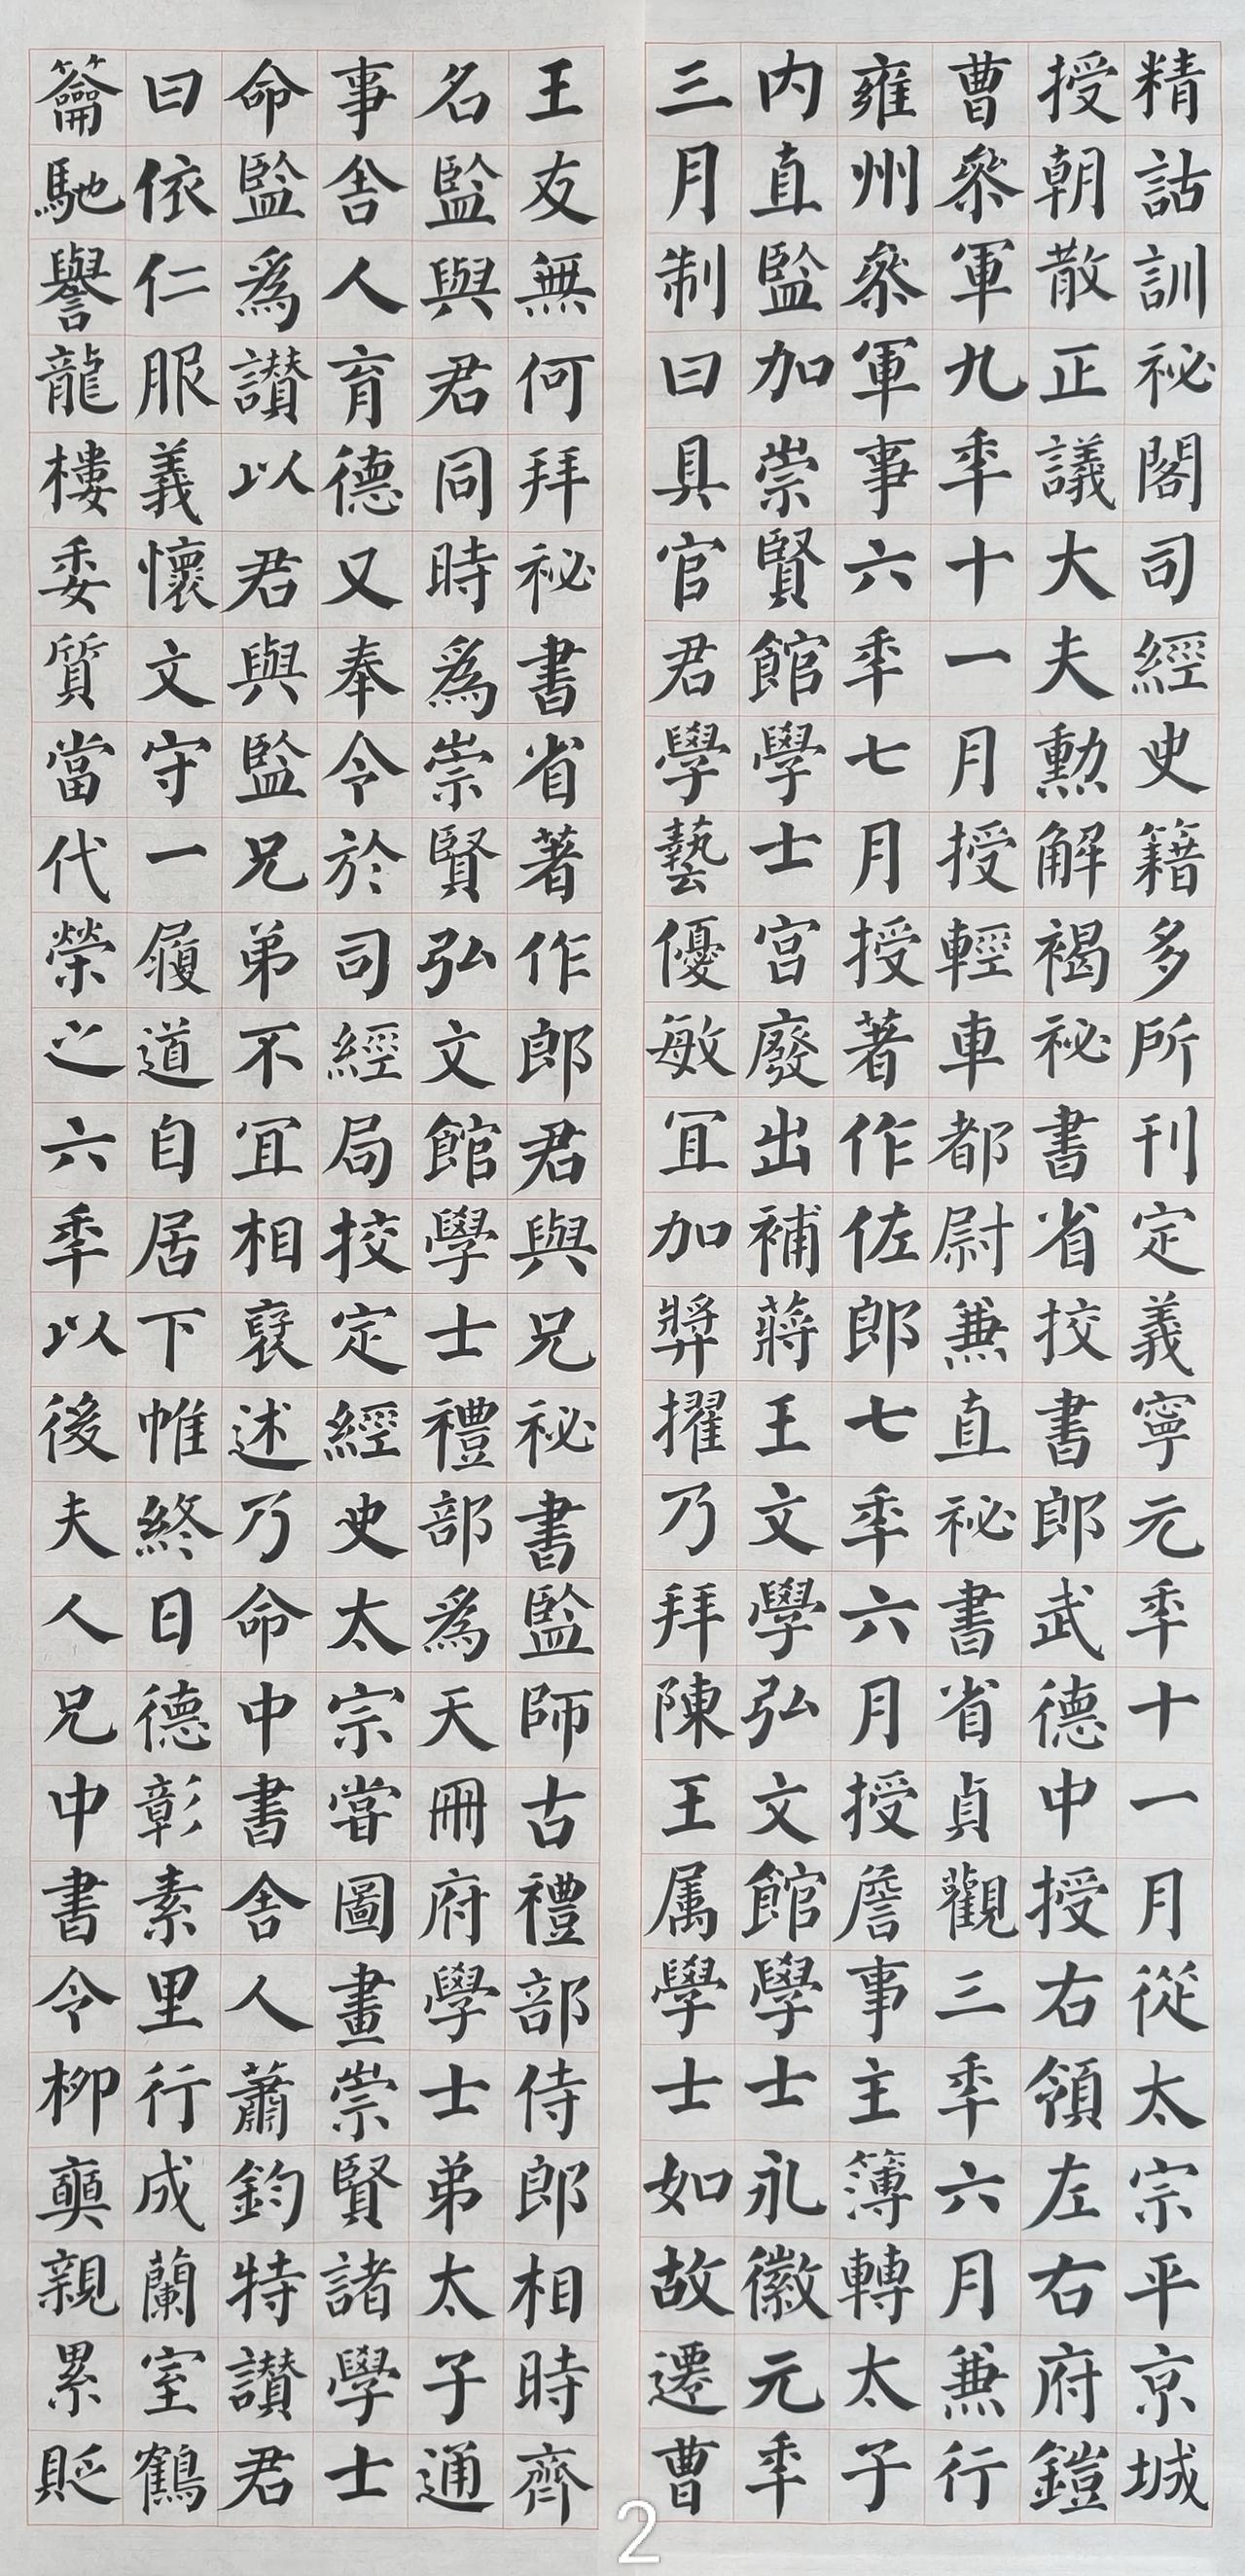 精詁訓祕閣司經史籍多所刊定義寧元秊十一月從太宗平京城
授朝散正議大夫勲解褐祕書省挍書郎武德中授右領左右府鎧
曹叅軍九秊十一月授輕車都尉兼直祕書省貞觀三秊六月兼行
雍州叅軍事六秊七月授著作佐郎七秊六月授詹事主簿轉太子
内直監加崇賢館學士宮廢出補蔣王文學弘文館學士永徽元秊
三月制曰具官君學藝優敏冝加獎擢乃拜陳王属學士如故遷曹
王友無何拜祕書省著作郎君與兄祕書監師古禮部侍郎相時齊
名監與君同時爲崇賢弘文館學士禮部爲天冊府學士弟太子通
事舍人育德又奉令於司經局挍定經史太宗嘗圖畫崇賢諸學士
命監爲讃以君與監兄弟不冝相襃述乃命中書舍人蕭鈞特讃君
曰依仁服義懷文守一履道自居下帷終日德彰素里行成蘭室鶴
籥馳譽龍樓委質當代榮之六秊以後夫人兄中書令柳奭親累貶
2